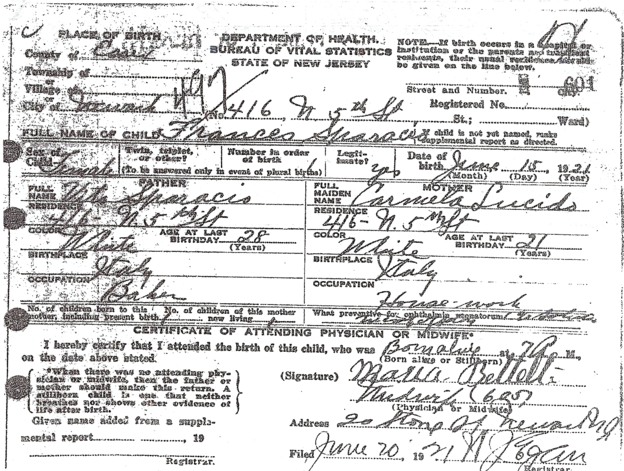 PLACE OF BIRTH
DEPARTMENT OF HEALTH.
BUREAU OF VITAL STATISTICS
STATE OF NEW JERSEY
NOTE.—If birth occurs in a hospital or
institution or the parents are transient
residents, their usual residence should
be given on the line below.
County of
Township of
Village of
or
City of Newark
497
(No. 416 N 5th St
Street and Number.
Registered No. 601
St.; Ward)
FULL NAME OF CHILD Frances Sparacio
If child is not yet named, make
supplemental report as directed.
Sex of Child Female
Twin, triplet, or other?
Number in order of birth
(To be answered only in event of plural births)
Legitimate? yes
Date of birth June 15 1921
(Month) (Day) (Year)
FATHER
FULL NAME Vito Sparacio
RESIDENCE 416 N. 5th St
COLOR White
AGE AT LAST BIRTHDAY 28 (Years)
BIRTHPLACE Italy
OCCUPATION Baker
MOTHER
FULL MAIDEN NAME Carmela Lucido
RESIDENCE 416 N. 5th St
COLOR White
AGE AT LAST BIRTHDAY 21 (Years)
BIRTHPLACE Italy
OCCUPATION House-work
No. of children born to this mother, including present birth
No. of children of this mother now living
What preventive for ophthalmia neonatorum?
CERTIFICATE OF ATTENDING PHYSICIAN OR MIDWIFE*
I hereby certify that I attended the birth of this child, who was Born alive at 7 P. M.,
on the date above stated.
(Born alive or Stillborn)
*When there was no attending phy-
sician or midwife, then the father or
mother should make this return. A
stillborn child is one that neither
breathes nor shows other evidence of
life after birth.
(Signature)
Midwife (605)
(Physician or Midwife)
Given name added from a supple-
mental report 19
Registrar.
Address 20 Stone St Newark N.J.
Filed June 20, 1921
Registrar.